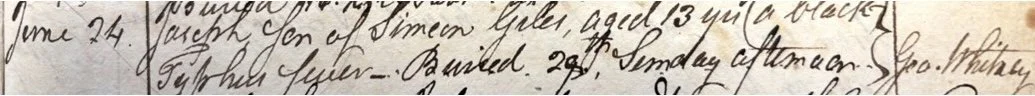 June 24. Joseph Son of Simeon Giles, aged 13 yrs (a black)
Typhus fever -. Buried. 29th, Sunday afternoon. Geo. Whitney